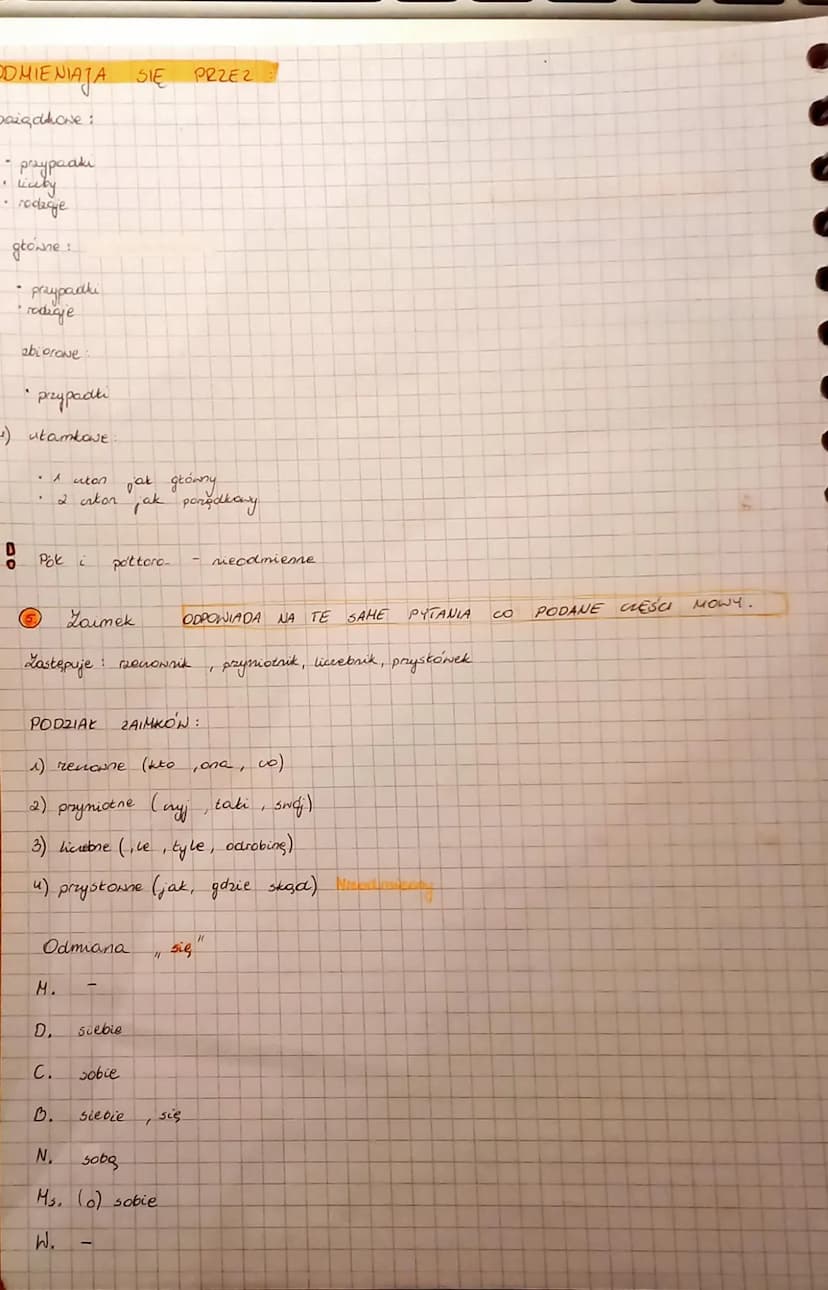 ODMIENIAJĄ SIĘ PRZEZ :
porządkowe :
- przypadki
• liczby
• rodzaje
główne :
- przypadki
• rodzaje
zbiorowe :
• przypadki
ułamkowe :
• 1 człon jak główny
• 2 człon jak porządkowy
Pół i półtora - nieodmienne
5. Zaimek ODPOWIADA NA TE SAME PYTANIA CO PODANE CZĘŚCI MOWY.
Zastępuje : rzeczownik , przymiotnik, liczebnik, przysłówek
PODZIAŁ ZAIMKÓW :
1) rzeczowne (kto , ona , co)
2) przymiotne (czyj , taki , swój)
3) liczebne (ile , tyle, odrobinę)
4) przysłowne (jak, gdzie skąd) Nieodmienny
Odmiana „ się "
M. -
D. siebie
C. sobie
B. siebie , się
N. sobą
Ms. (o) sobie
W. -